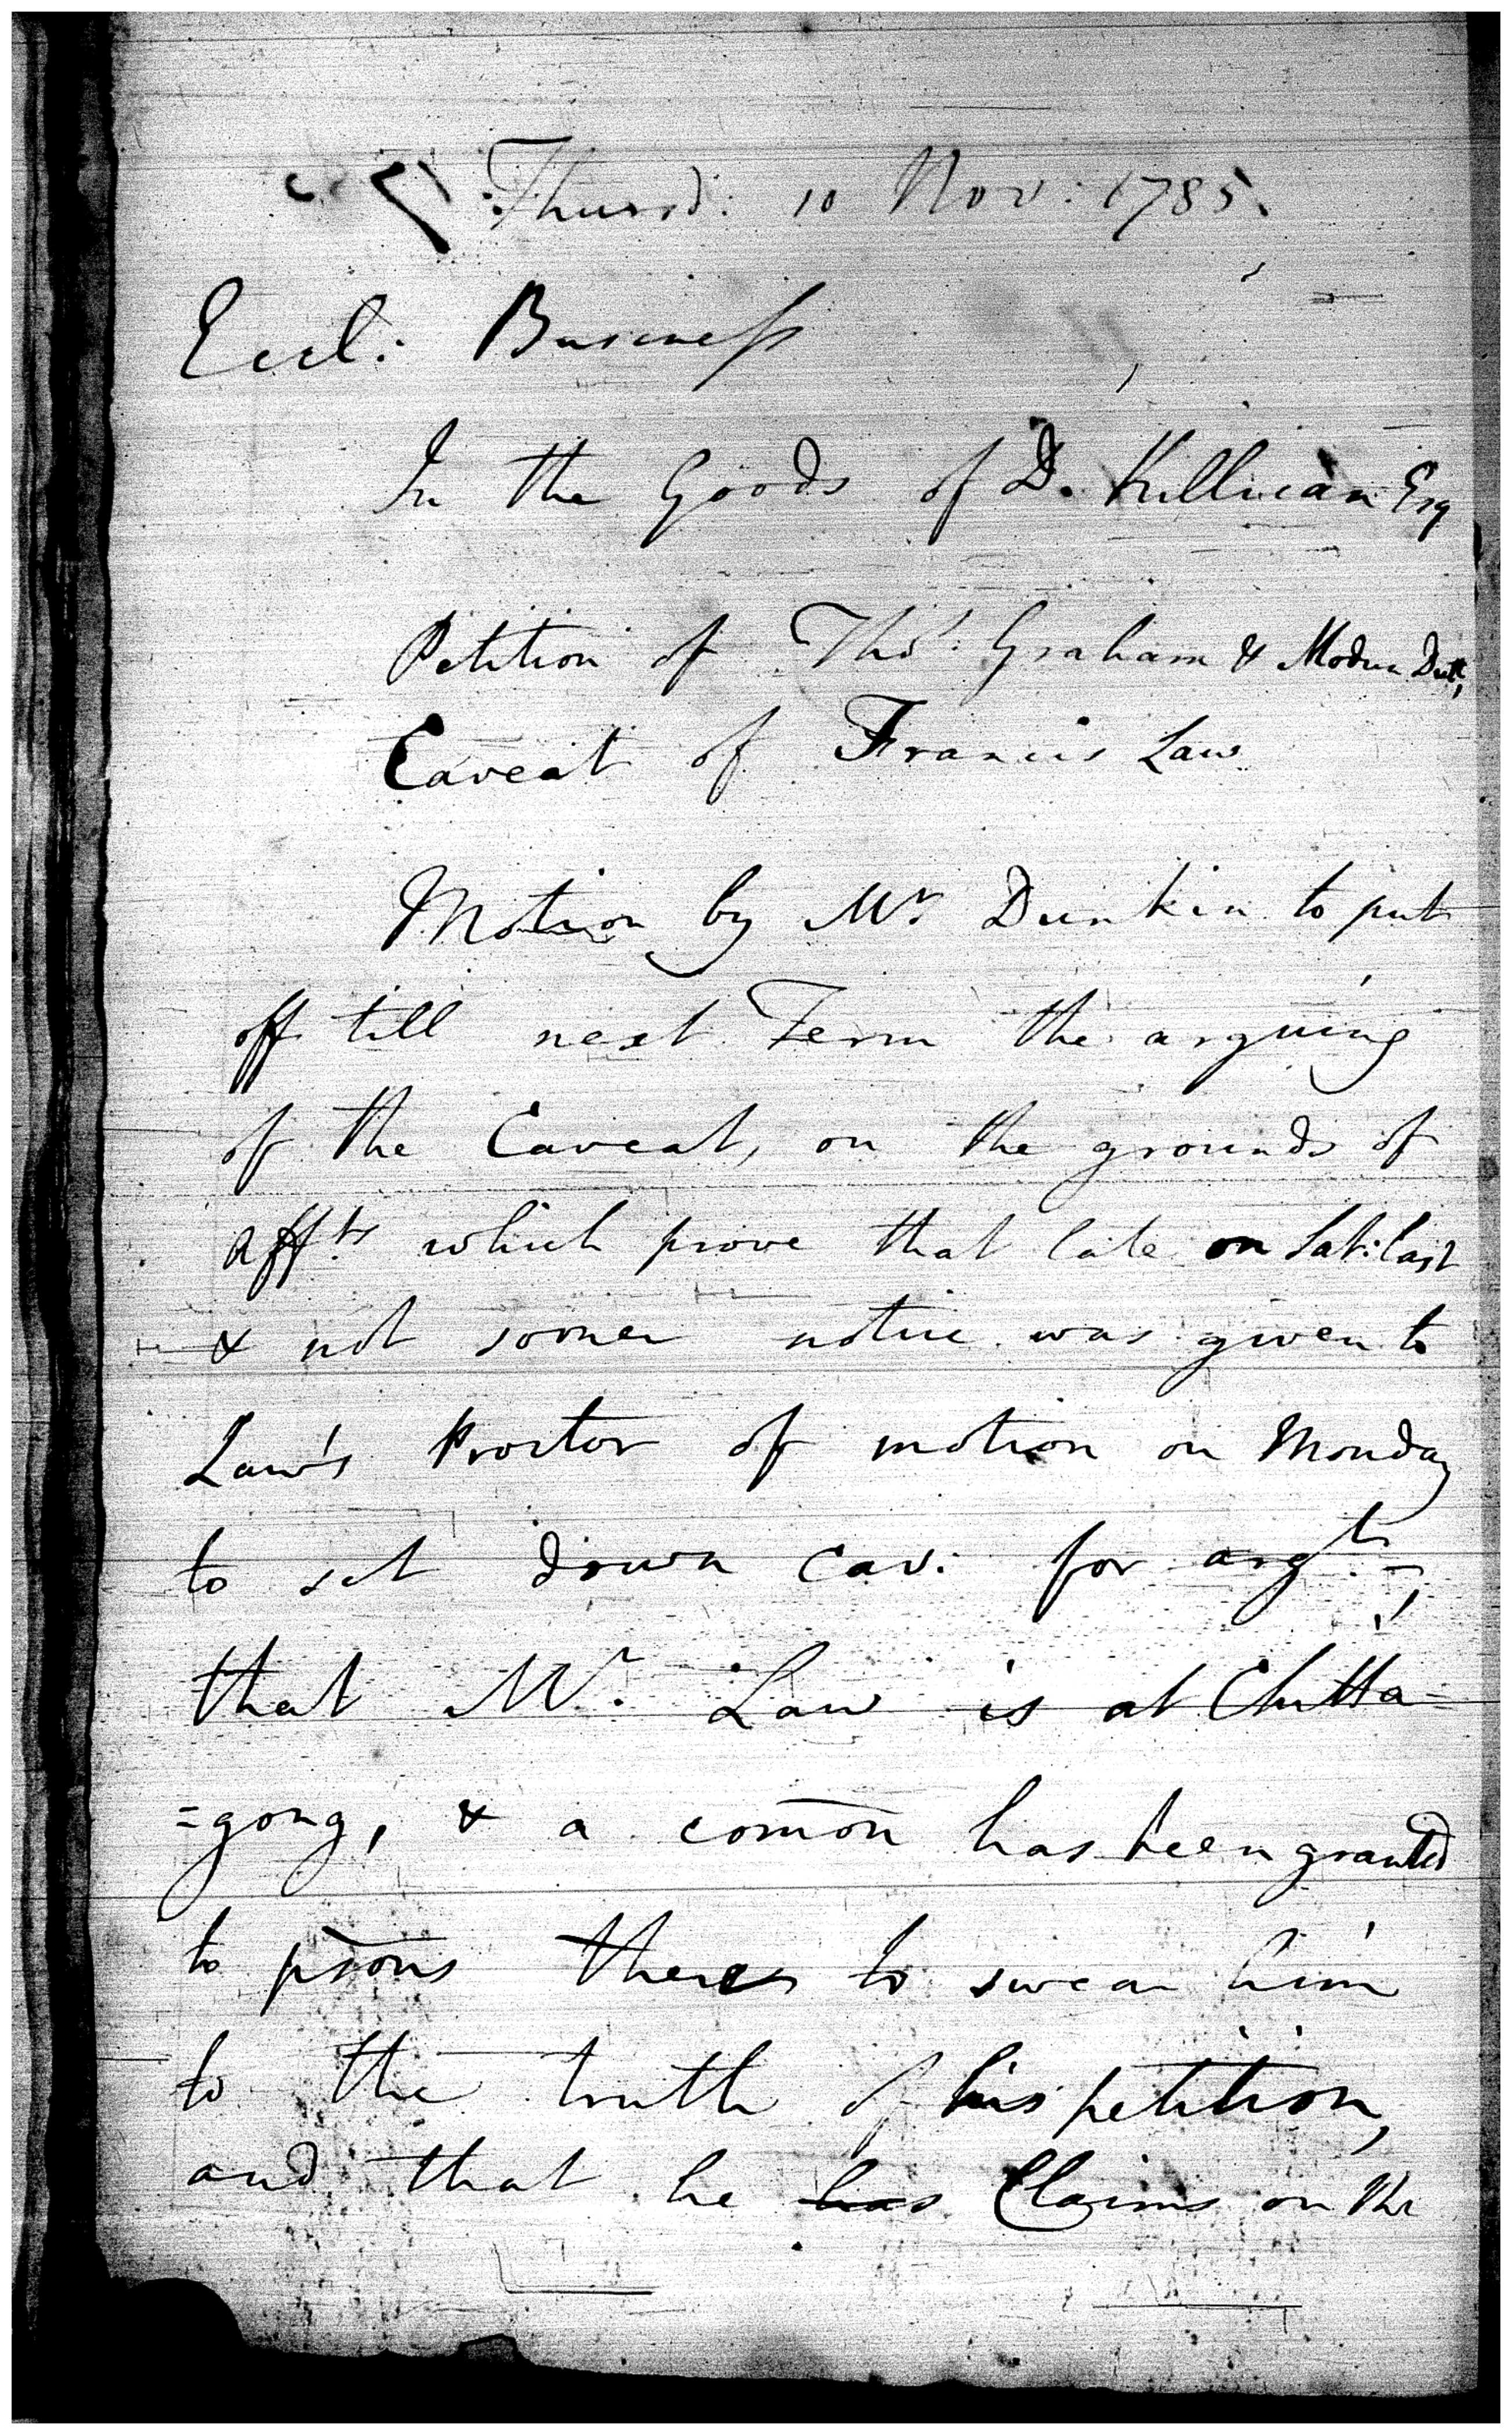 Thursd: 10 Nov: 1785.
Eccl: Business
In the Goods of D. Killican Esq
Petition of Thos. Graham & Modun Dutt,
Caveat of Francis Law
Motion by Mr Dunkin to put
off till next Term the arguing
of the Caveat, on the grounds of
affts. which prove that late on Sat: last
& not sooner notice was given to
Law's Proctor of motion on Monday
to set down Cav: for argt.,
that Mr. Law is at Chitta-
=gong, & a comōn has been granted
to psons there to swear him
to the truth of his petition,
and that he has Claims on the